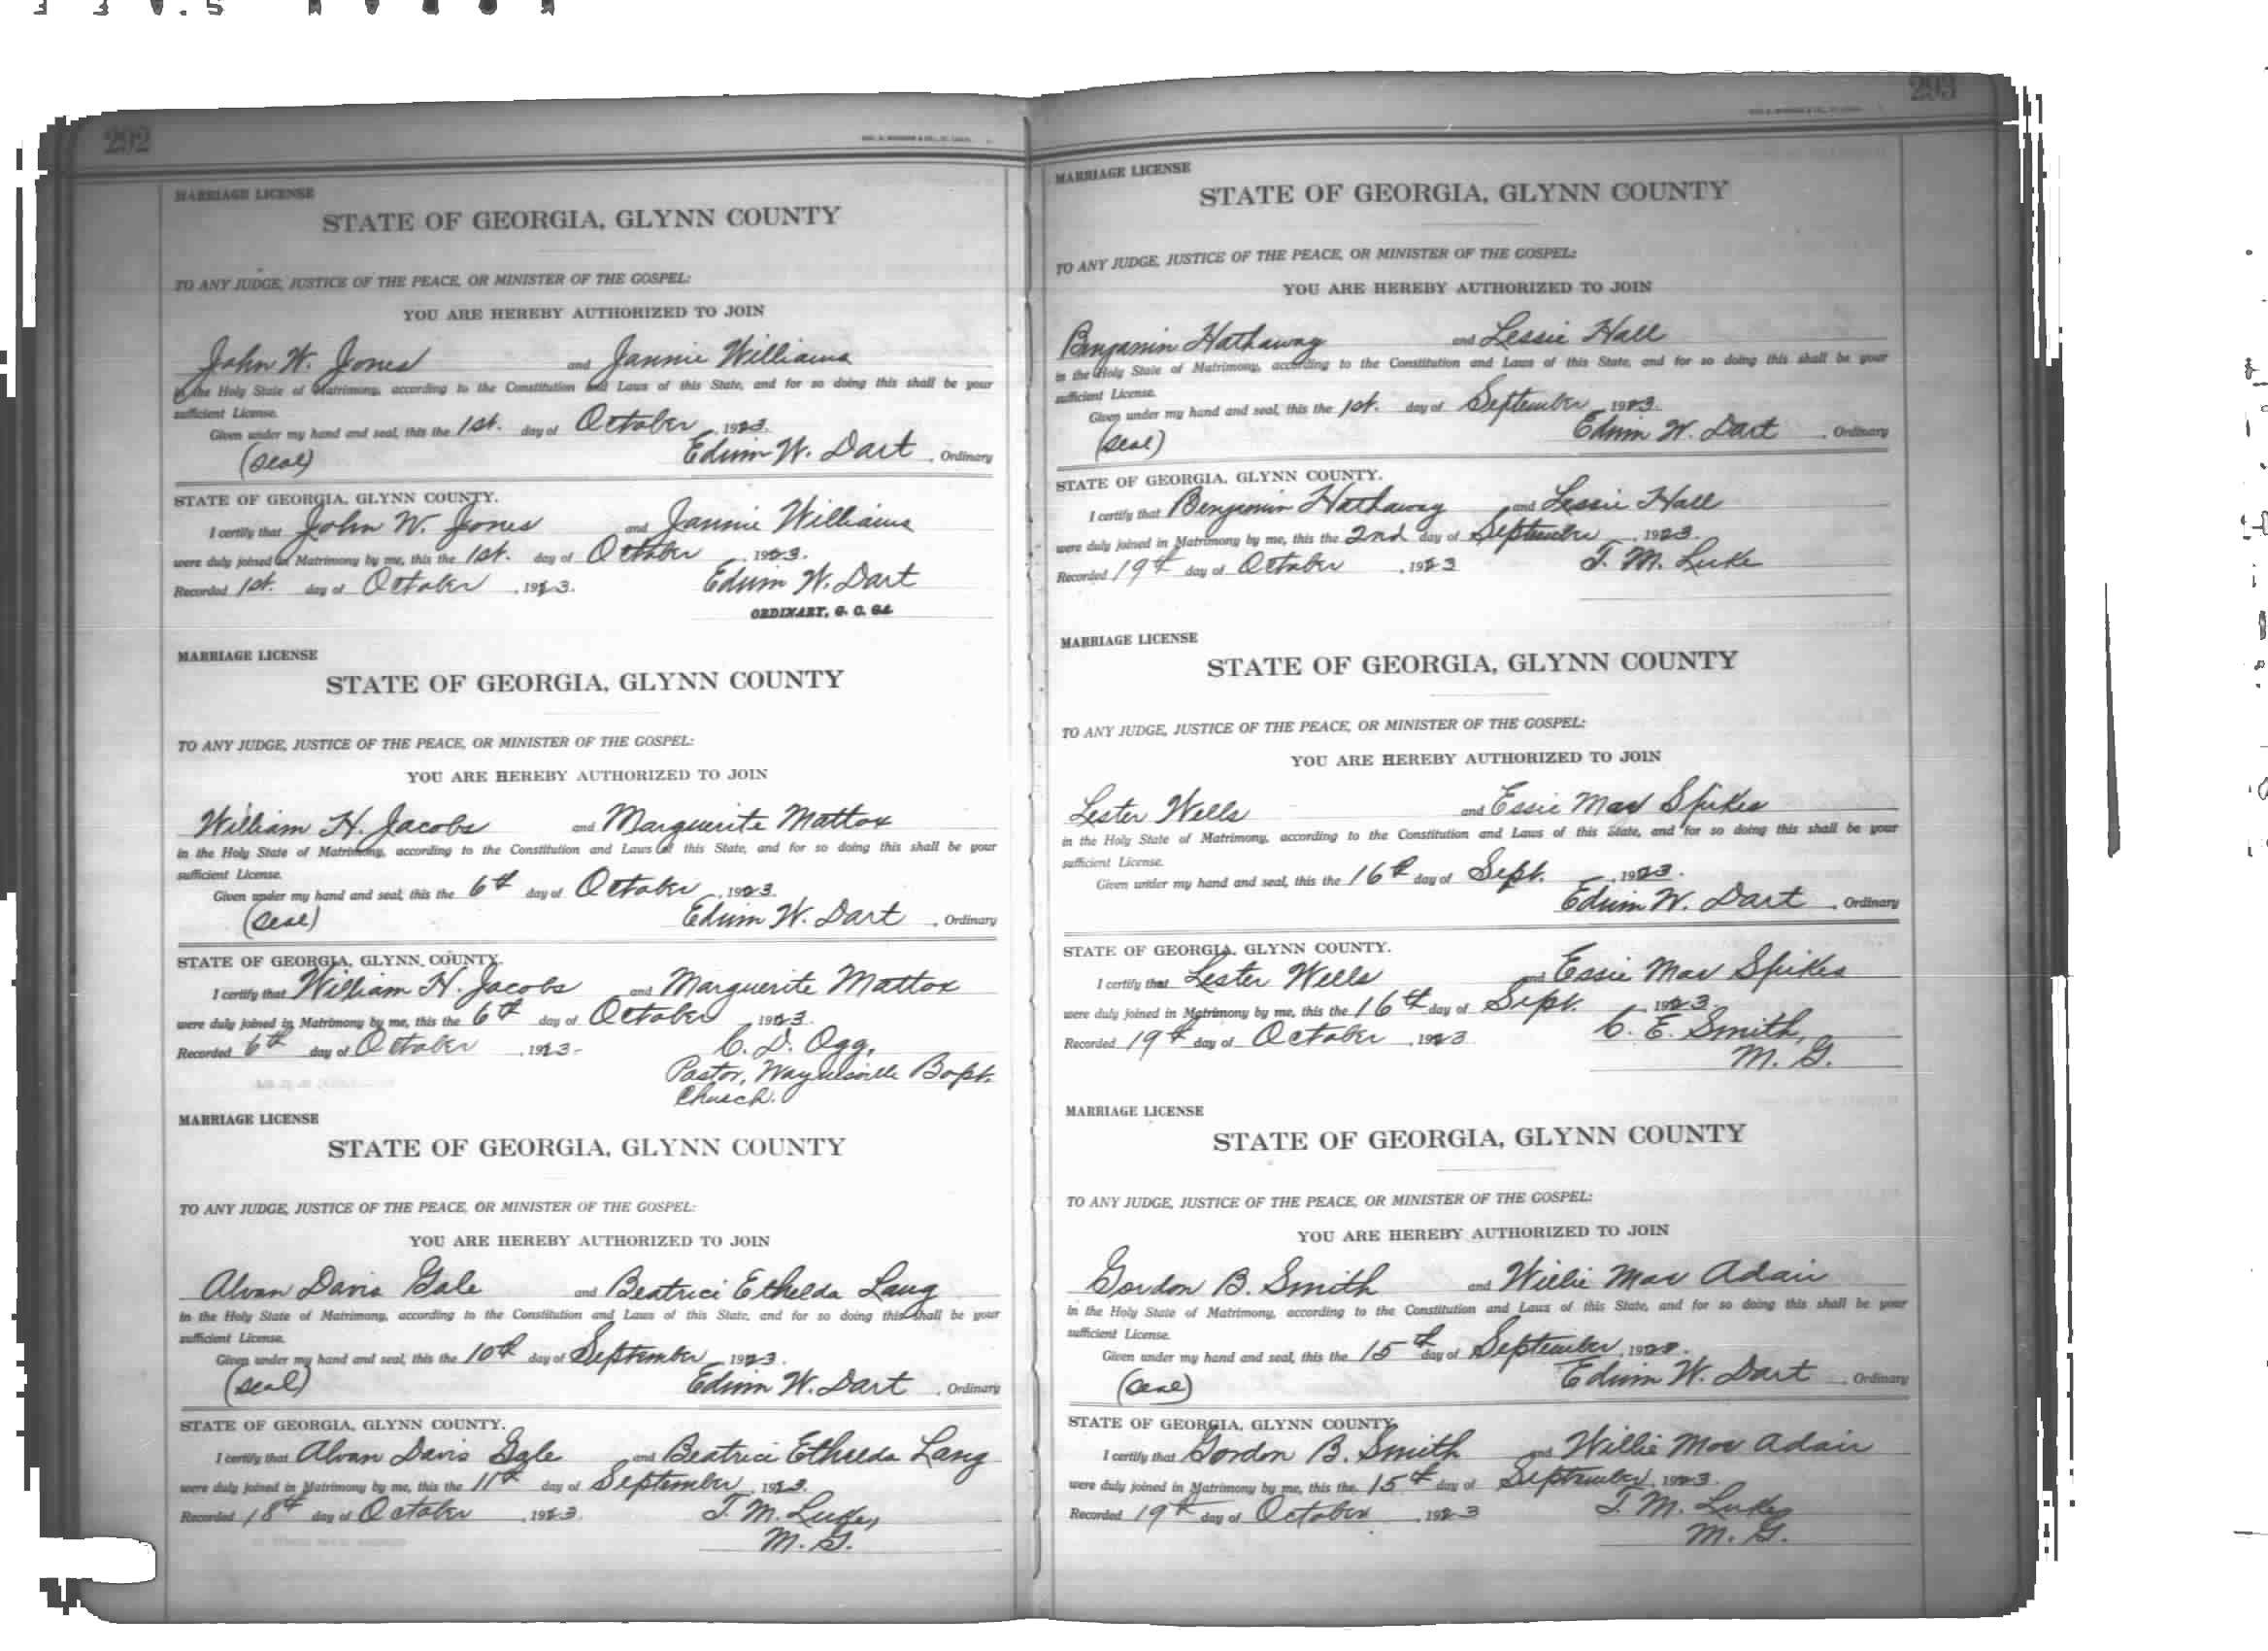 292
MARRIAGE LICENSE
STATE OF GEORGIA, GLYNN COUNTY
TO ANY JUDGE, JUSTICE OF THE PEACE, OR MINISTER OF THE GOSPEL:
YOU ARE HEREBY AUTHORIZED TO JOIN
John W. Jones and Jannie Williams
in the Holy State of Matrimony, according to the Constitution and Laws of this State, and for so doing this shall be your
sufficient License.
Given under my hand and seal, this the 1st. day of October, 1923.
(Seal) Edwin W. Dart, Ordinary
STATE OF GEORGIA, GLYNN COUNTY.
I certify that John W. Jones and Jannie Williams
were duly joined in Matrimony by me, this the 1st. day of October, 1923.
Recorded 1st. day of October, 1923. Edwin W. Dart
ORDINARY, G. C. GA.
MARRIAGE LICENSE
STATE OF GEORGIA, GLYNN COUNTY
TO ANY JUDGE, JUSTICE OF THE PEACE, OR MINISTER OF THE GOSPEL:
YOU ARE HEREBY AUTHORIZED TO JOIN
William H. Jacobs and Marguerite Mattox
in the Holy State of Matrimony, according to the Constitution and Laws of this State, and for so doing this shall be your
sufficient License.
Given under my hand and seal, this the 6th day of October, 1923.
(Seal) Edwin W. Dart, Ordinary
STATE OF GEORGIA, GLYNN COUNTY.
I certify that William H. Jacobs and Marguerite Mattox
were duly joined in Matrimony by me, this the 6th day of October, 1923.
Recorded 6th day of October, 1923. C. D. Ogg,
Pastor, Waynesville Bapt.
Church.
MARRIAGE LICENSE
STATE OF GEORGIA, GLYNN COUNTY
TO ANY JUDGE, JUSTICE OF THE PEACE, OR MINISTER OF THE GOSPEL:
YOU ARE HEREBY AUTHORIZED TO JOIN
Alvan Davis Gale and Beatrice Ethelda Lang
in the Holy State of Matrimony, according to the Constitution and Laws of this State, and for so doing this shall be your
sufficient License.
Given under my hand and seal, this the 10th day of September, 1923.
(Seal) Edwin W. Dart, Ordinary
STATE OF GEORGIA, GLYNN COUNTY.
I certify that Alvan Davis Gale and Beatrice Ethelda Lang
were duly joined in Matrimony by me, this the 11th day of September, 1923.
Recorded 18th day of October, 1923. T. M. Luke,
M. G.
293
MARRIAGE LICENSE
STATE OF GEORGIA, GLYNN COUNTY
TO ANY JUDGE, JUSTICE OF THE PEACE, OR MINISTER OF THE GOSPEL:
YOU ARE HEREBY AUTHORIZED TO JOIN
Benjamin Hathaway and Lessie Hall
in the Holy State of Matrimony, according to the Constitution and Laws of this State, and for so doing this shall be your
sufficient License.
Given under my hand and seal, this the 1st. day of September, 1923.
(Seal) Edwin W. Dart, Ordinary
STATE OF GEORGIA, GLYNN COUNTY.
I certify that Benjamin Hathaway and Lessie Hall
were duly joined in Matrimony by me, this the 2nd day of September, 1923.
Recorded 19th day of October, 1923 T. M. Luke
MARRIAGE LICENSE
STATE OF GEORGIA, GLYNN COUNTY
TO ANY JUDGE, JUSTICE OF THE PEACE, OR MINISTER OF THE GOSPEL:
YOU ARE HEREBY AUTHORIZED TO JOIN
Lester Wells and Essie Mae Spikes
in the Holy State of Matrimony, according to the Constitution and Laws of this State, and for so doing this shall be your
sufficient License.
Given under my hand and seal, this the 16th day of Sept., 1923.
Edwin W. Dart, Ordinary
STATE OF GEORGIA, GLYNN COUNTY.
I certify that Lester Wells and Essie Mae Spikes
were duly joined in Matrimony by me, this the 16th day of Sept., 1923.
Recorded 19th day of October, 1923 C. E. Smith,
M. G.
MARRIAGE LICENSE
STATE OF GEORGIA, GLYNN COUNTY
TO ANY JUDGE, JUSTICE OF THE PEACE, OR MINISTER OF THE GOSPEL:
YOU ARE HEREBY AUTHORIZED TO JOIN
Gordon B. Smith and Willie Mae Adair
in the Holy State of Matrimony, according to the Constitution and Laws of this State, and for so doing this shall be your
sufficient License.
Given under my hand and seal, this the 15th day of September, 1923.
(Seal) Edwin W. Dart, Ordinary
STATE OF GEORGIA, GLYNN COUNTY.
I certify that Gordon B. Smith and Willie Mae Adair
were duly joined in Matrimony by me, this the 15th day of September, 1923.
Recorded 19th day of October, 1923 T. M. Luke,
M. G.